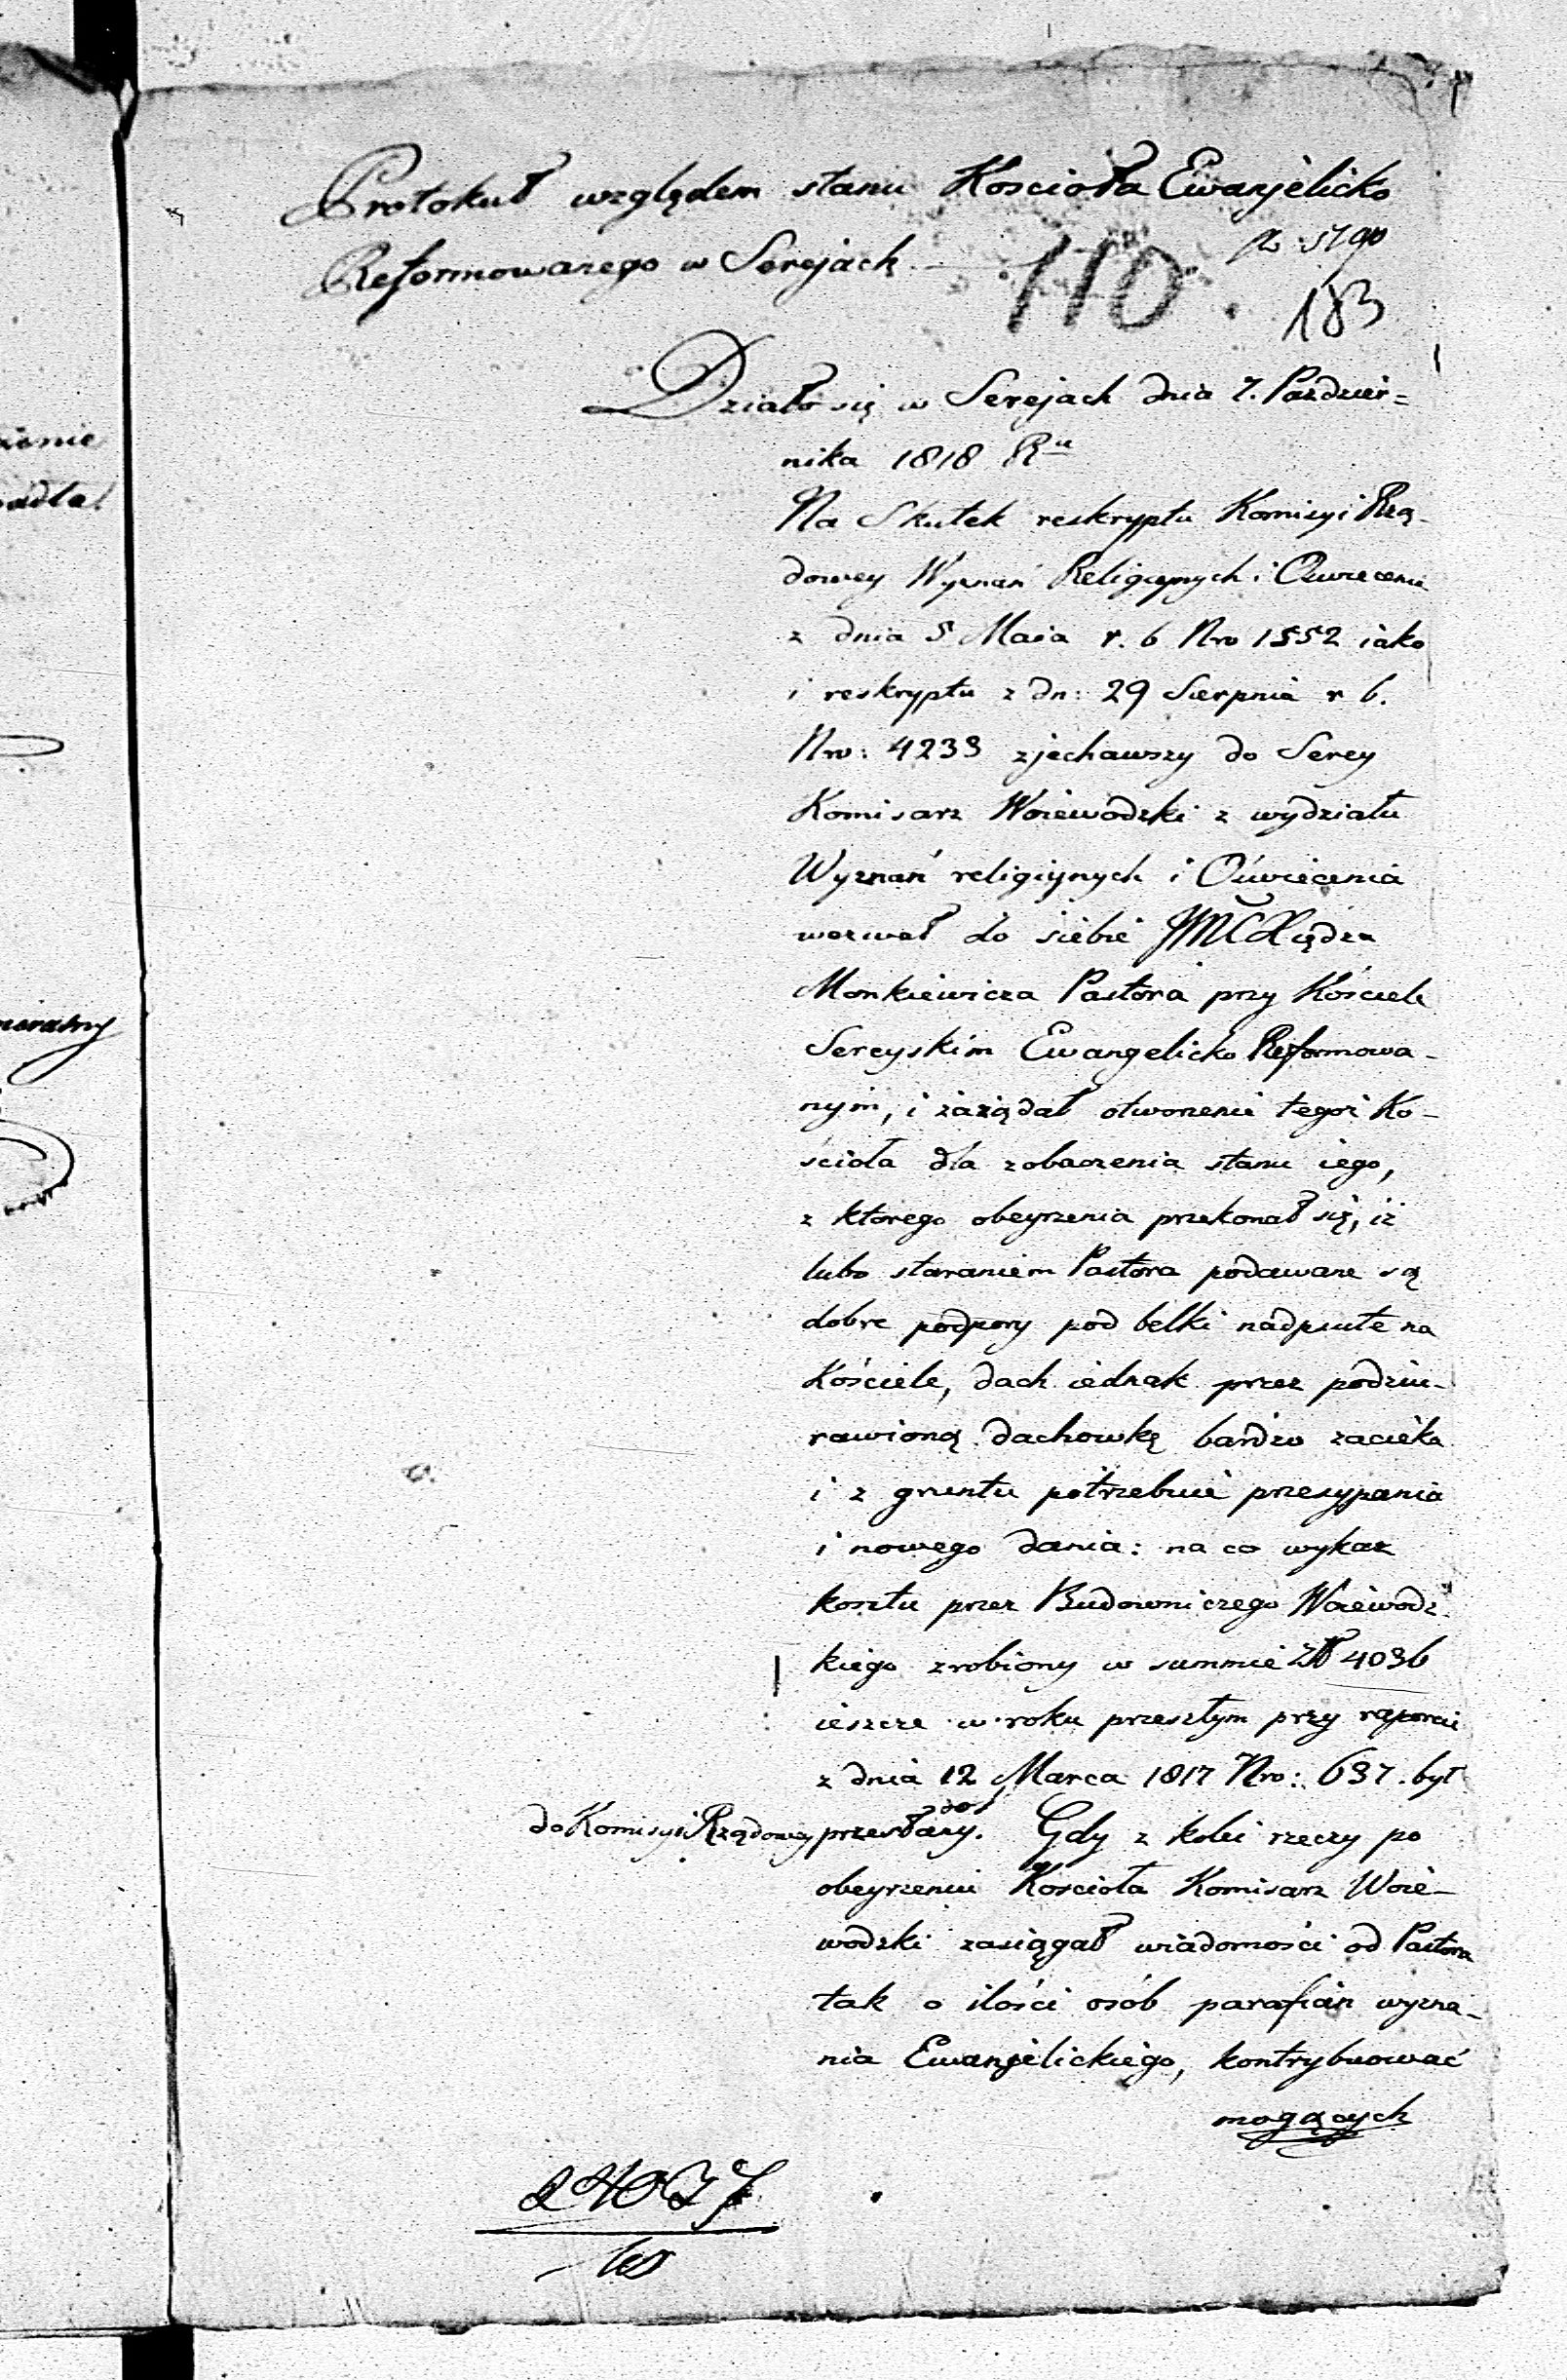 Protokuł względem stanu Kościoła Ewanjelicko
Reformowanego w Serejach
110
183
Działo się w Serejach dnia 7. Paździer=
nika 1818 Ru
Na Skutek reskryptu Komisyi Rzą-
dowey Wyznań Religiynych i Oświecenia
z dnia 5 Maia r. b Nro 1552 iako
i reskryptu z dn: 29 Sierpnia r b.
Nro: 4233 zjechawszy do Serey
Komisarz Woiewodzki z wydziału
Wyznań religiynych i Oświecenia
wezwał do siebie JMC Xiędza
Monkiewicza Pastora przy Kościele
Sereyskim Ewangelicko Reformowa-
nym, i zażądał otworzenia tegoż Ko-
ścioła dla zobaczenia stanu iego,
z którego obeyrzenia przekonał się, iż
lubo staraniem Pastora podawane są
dobre podpory pod belki nadpsute na
Kościele, dach iednak przez podziu-
rawioną dachowkę bardzo zacieka
i z gruntu potrzebuie przesypania
i nowego dania: na co wykaz
kosztu przez Budowniczego Woiewodz-
kiego zrobiony w summie Złł 4036
ieszcze w roku przeszłym przy raporcie
z dnia 12 Marca 1817 Nro: 637. był
do Komisyi Rządowey przesłany. Gdy z kolei rzeczy po
obeyrzeniu Kościoła Komisarz Woie-
wodzki zasiągał wiadomości od Pastora
tak o ilości osób parafian wyzna-
nia Ewanjelickiego, kontrybuować
mogących